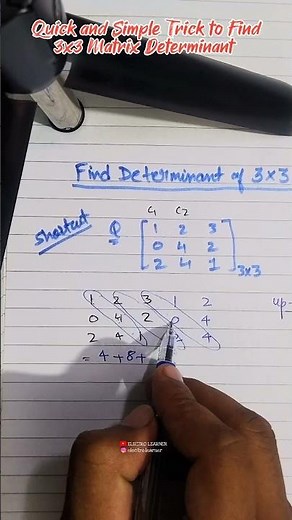 Quick and Simple Trick to Find
3x3 Matrix Determinant
Find Determinant of 3×3
C1 C2
Shortcut Q 1 2 3
0 4 2
2 4 1 3×3
1 2 3 1 2
0 4 2 0 4
2 4 1 2 4
up-
= 4 + 8 +
ELECTRO LEARNER